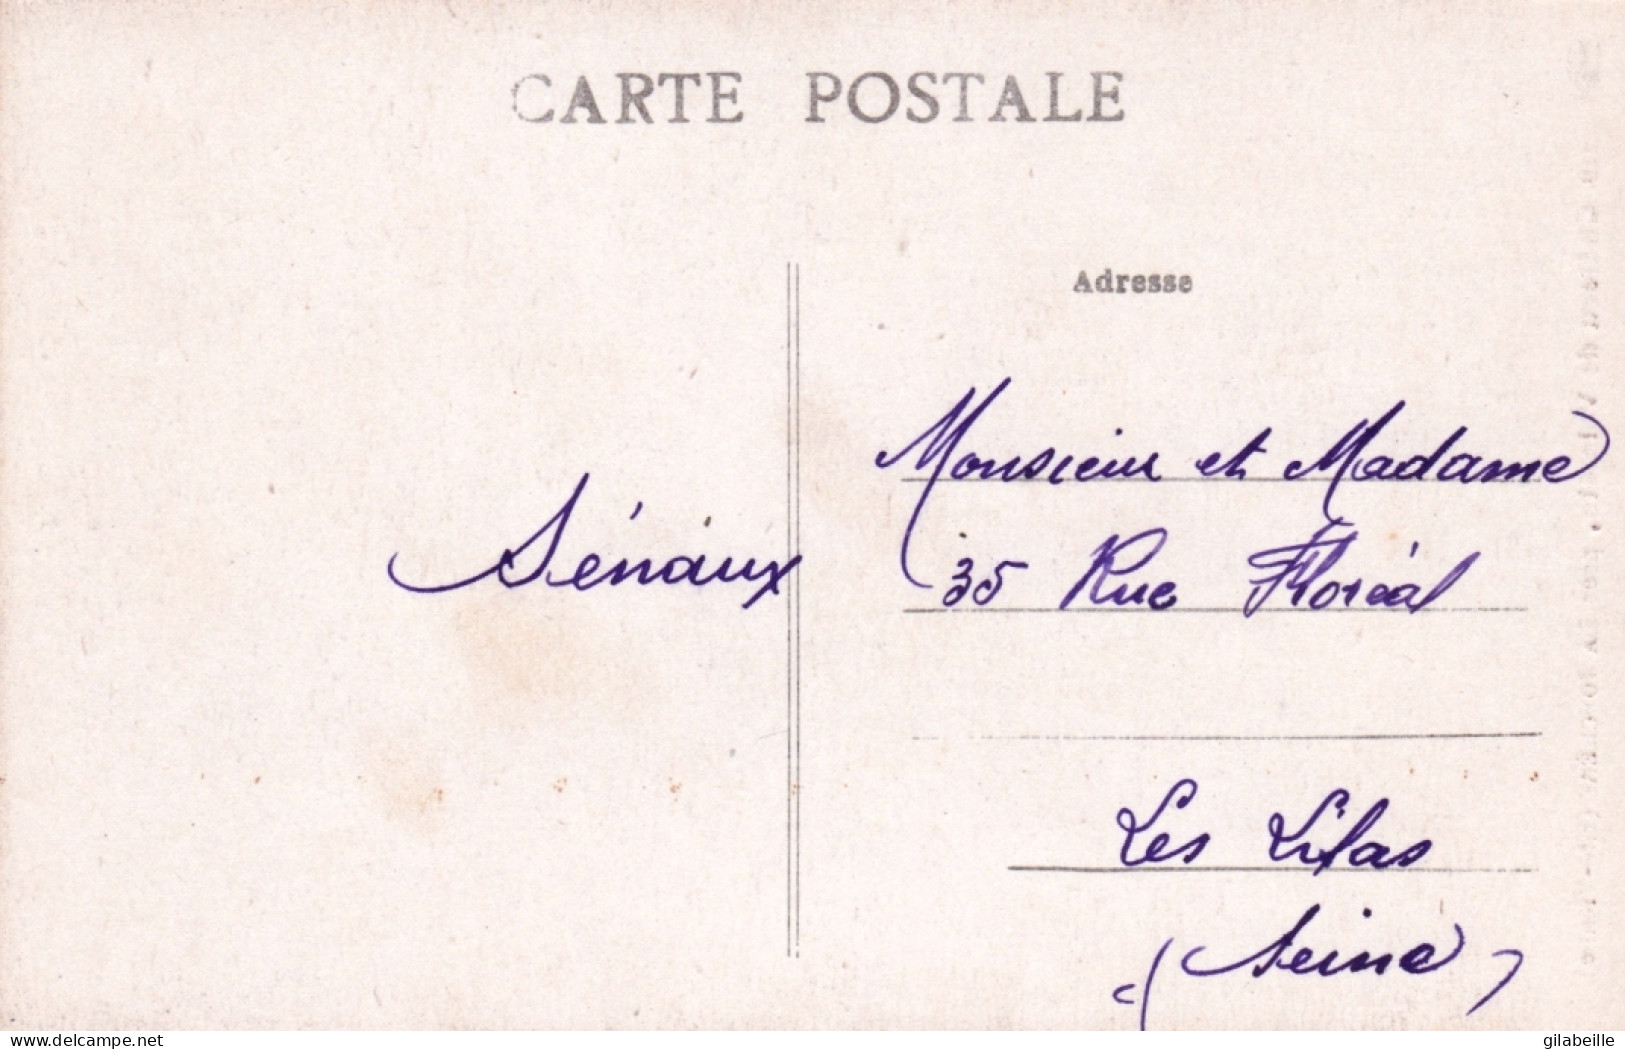 CARTE POSTALE
Adresse
Monsieur et Madame
Sénaux
35 Rue Floréal
Les Lilas
(Seine)
delcampe.net
gilabeille